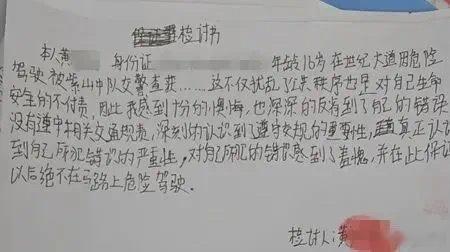 检讨书
本人黄 身份证 年龄16岁 在世纪大道因危险
驾驶被紫山中队交警查获……这不仅扰乱了公共秩序也是对自己生命
安全的不付责,因此我感到十分的懊悔,也深深的反省到了自己的错误
没有遵守相关交通规责,深刻的认识到了遵守交规的重要性,真正认识
到自己所犯错误的严重性,对自己所犯的错误感到了羞愧,并在此保证
以后绝不在马路上危险驾驶.
检讨人:黄